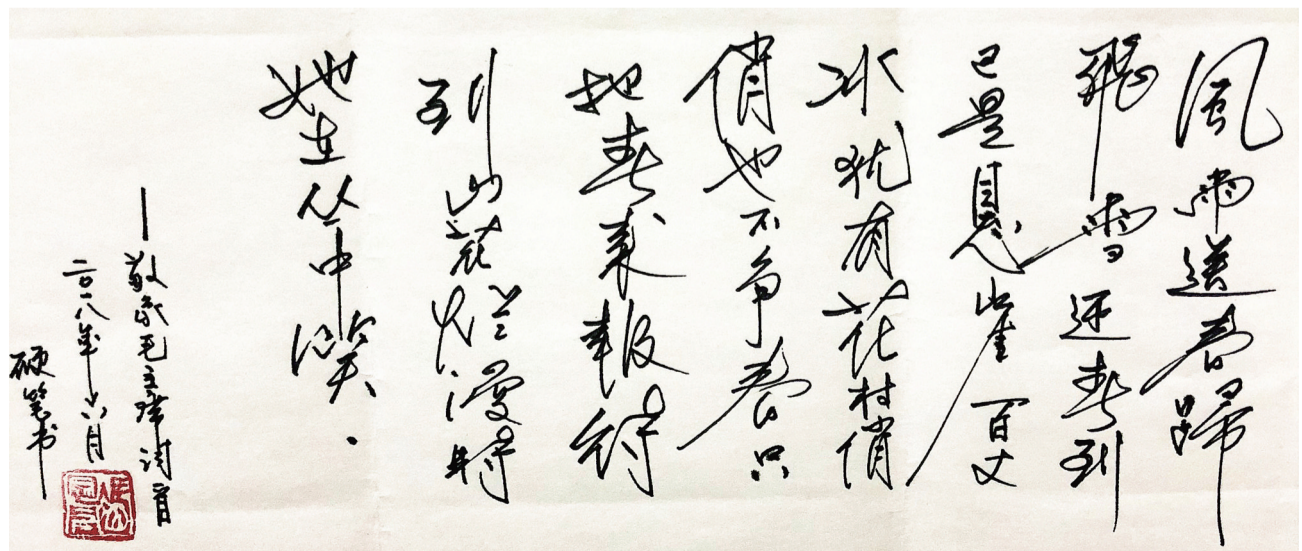 風雨送春歸
飛雪迎春到
已是悬崖百丈
冰犹有花枝俏
俏也不争春只
把春来報待
到山花烂漫時
她在从中笑.
—敬录毛主席诗一首
二〇一八年六月
硬笔书